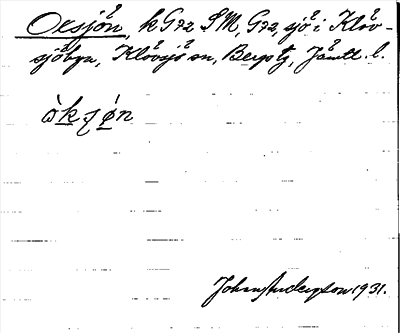 Oxsjön, k G72 SM, G72, sjö i Klöv-
sjöbyn, Klövsjö sn, Bergs tg, Jämtl. l.
Johan Anderson 1931.